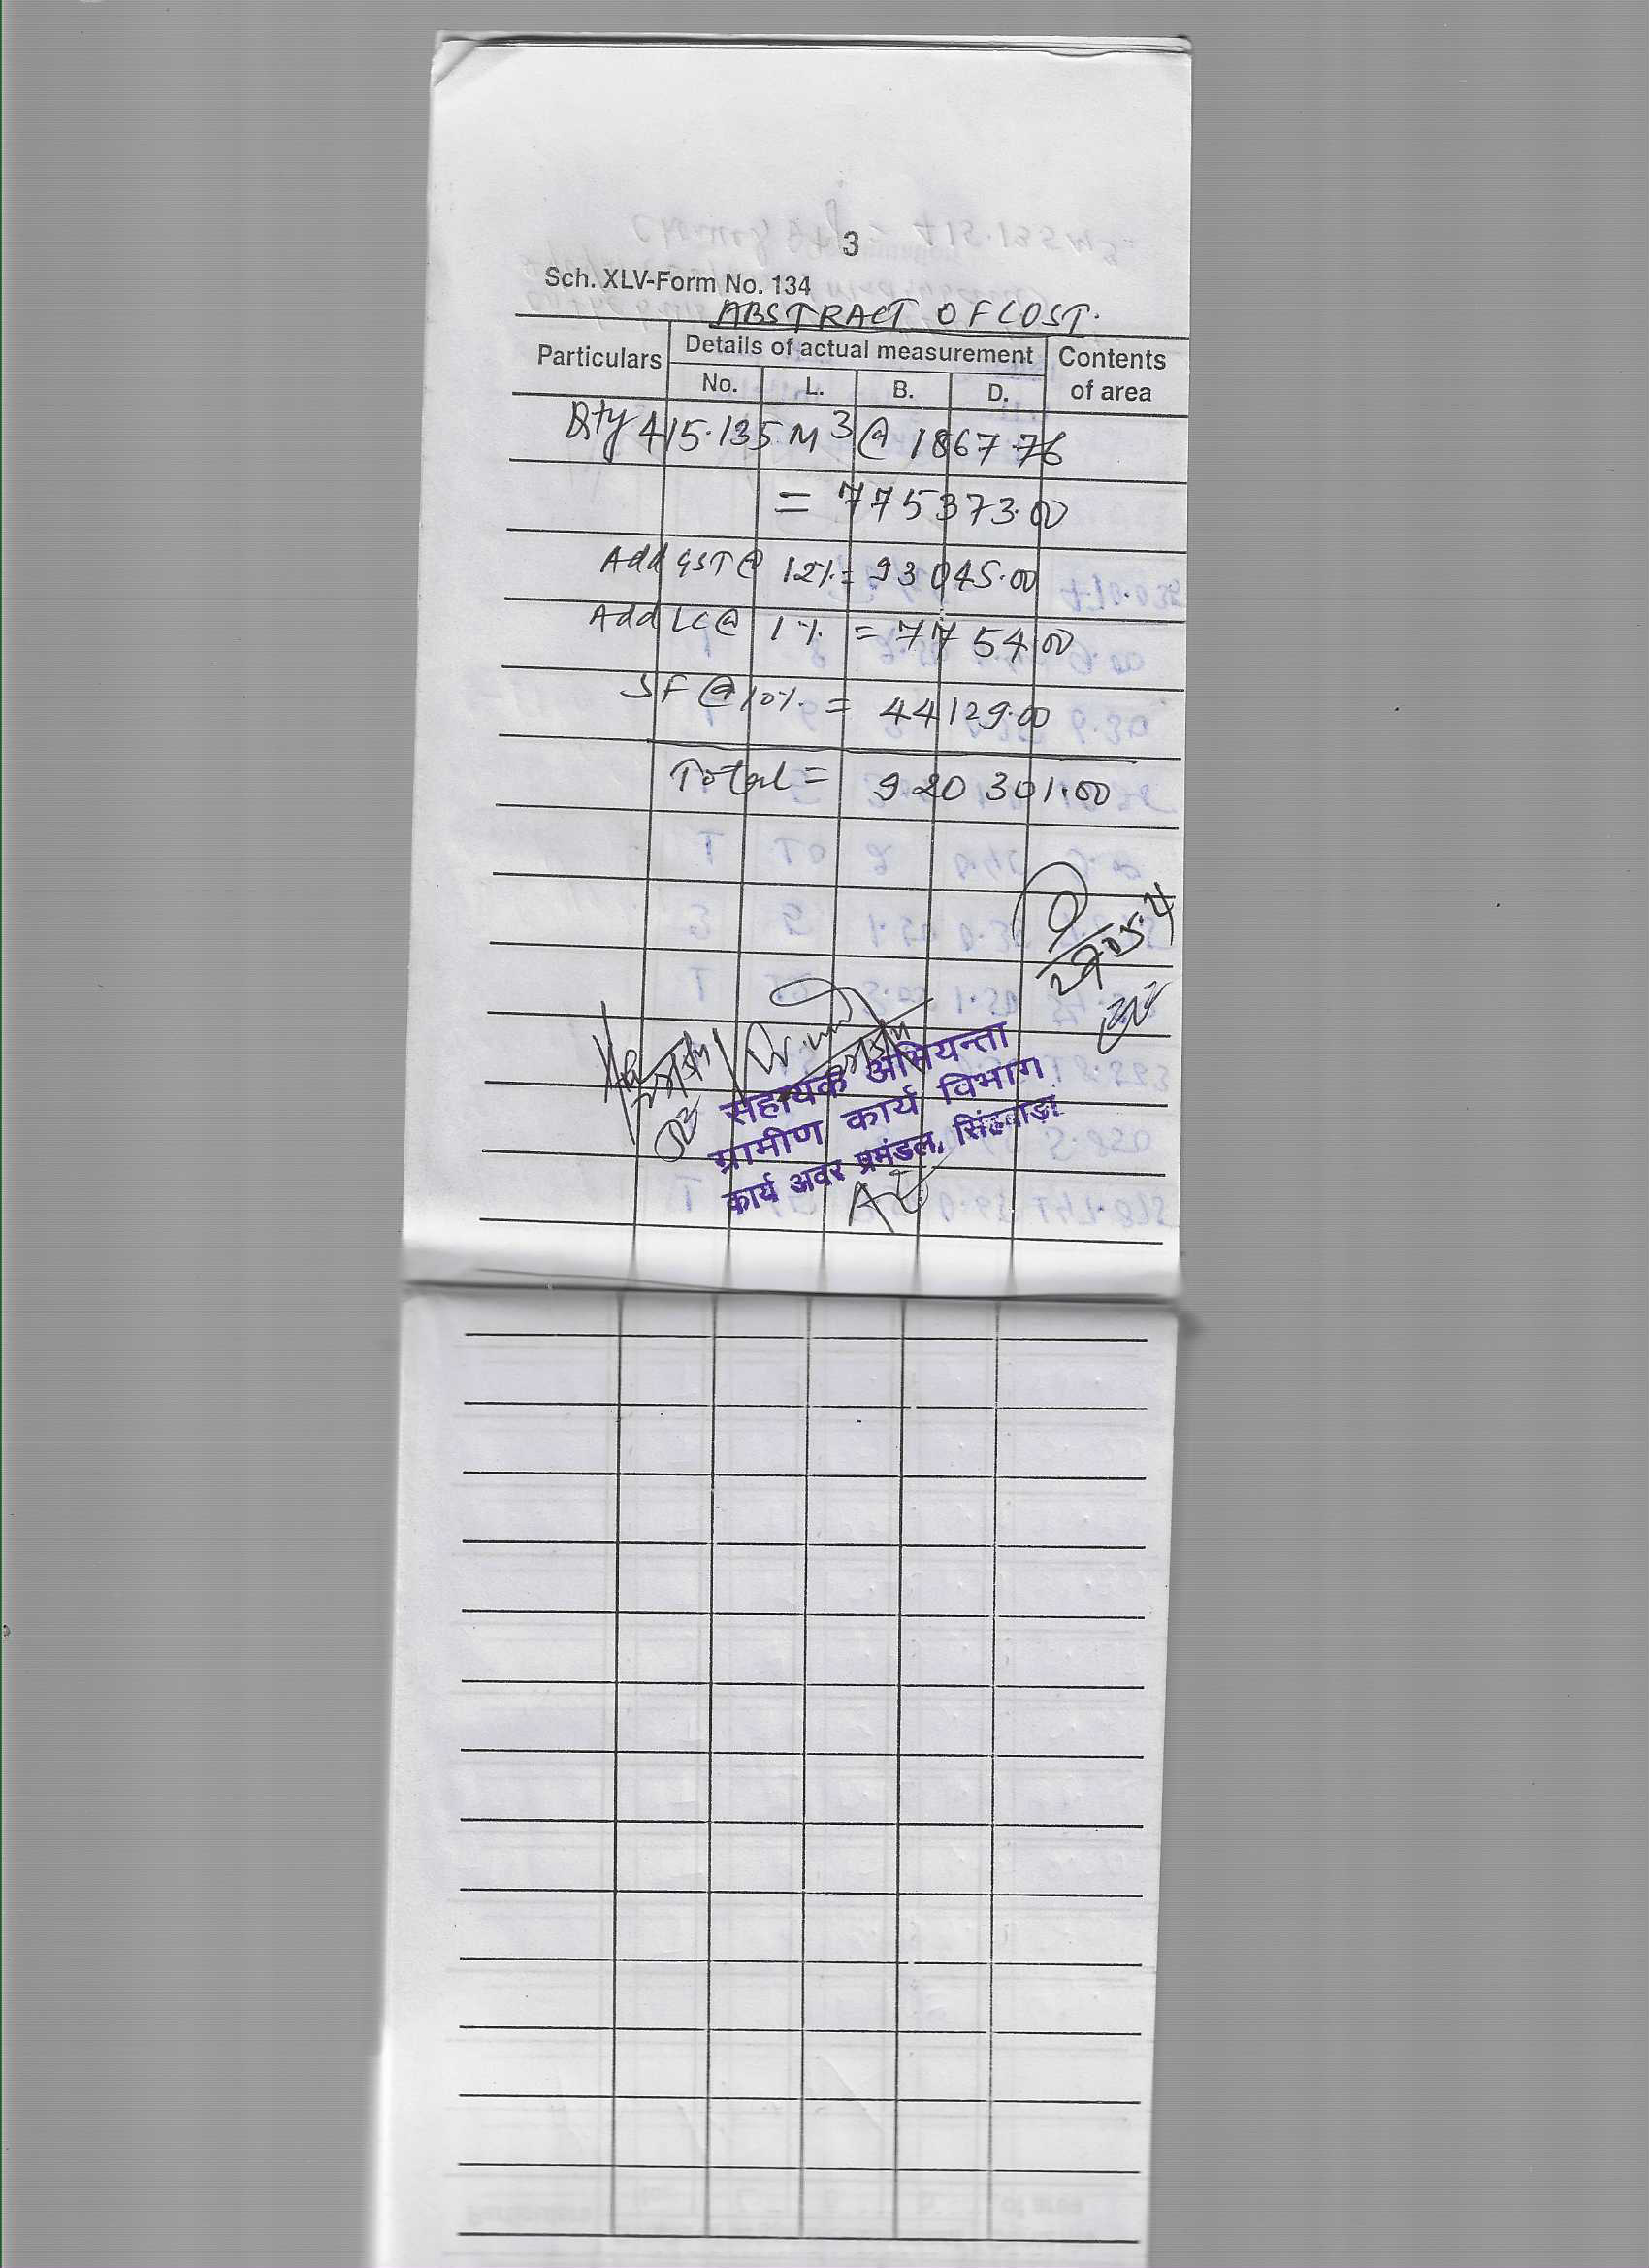 3
Sch. XLV-Form No. 134
ABSTRACT OF COST.
Particulars Details of actual measurement Contents of area
No. L. B. D.
Qty 415.135 M3 @ 1867.76
= 775373.00
Add GST @ 12% = 93045.00
Add LC @ 1% = 7754.00
SF @ 10% = 44129.00
Total = 920301.00
सहायक अभियन्ता
ग्रामीण कार्य विभाग
कार्य अवर प्रमंडल, सिंहवाड़ा
AE